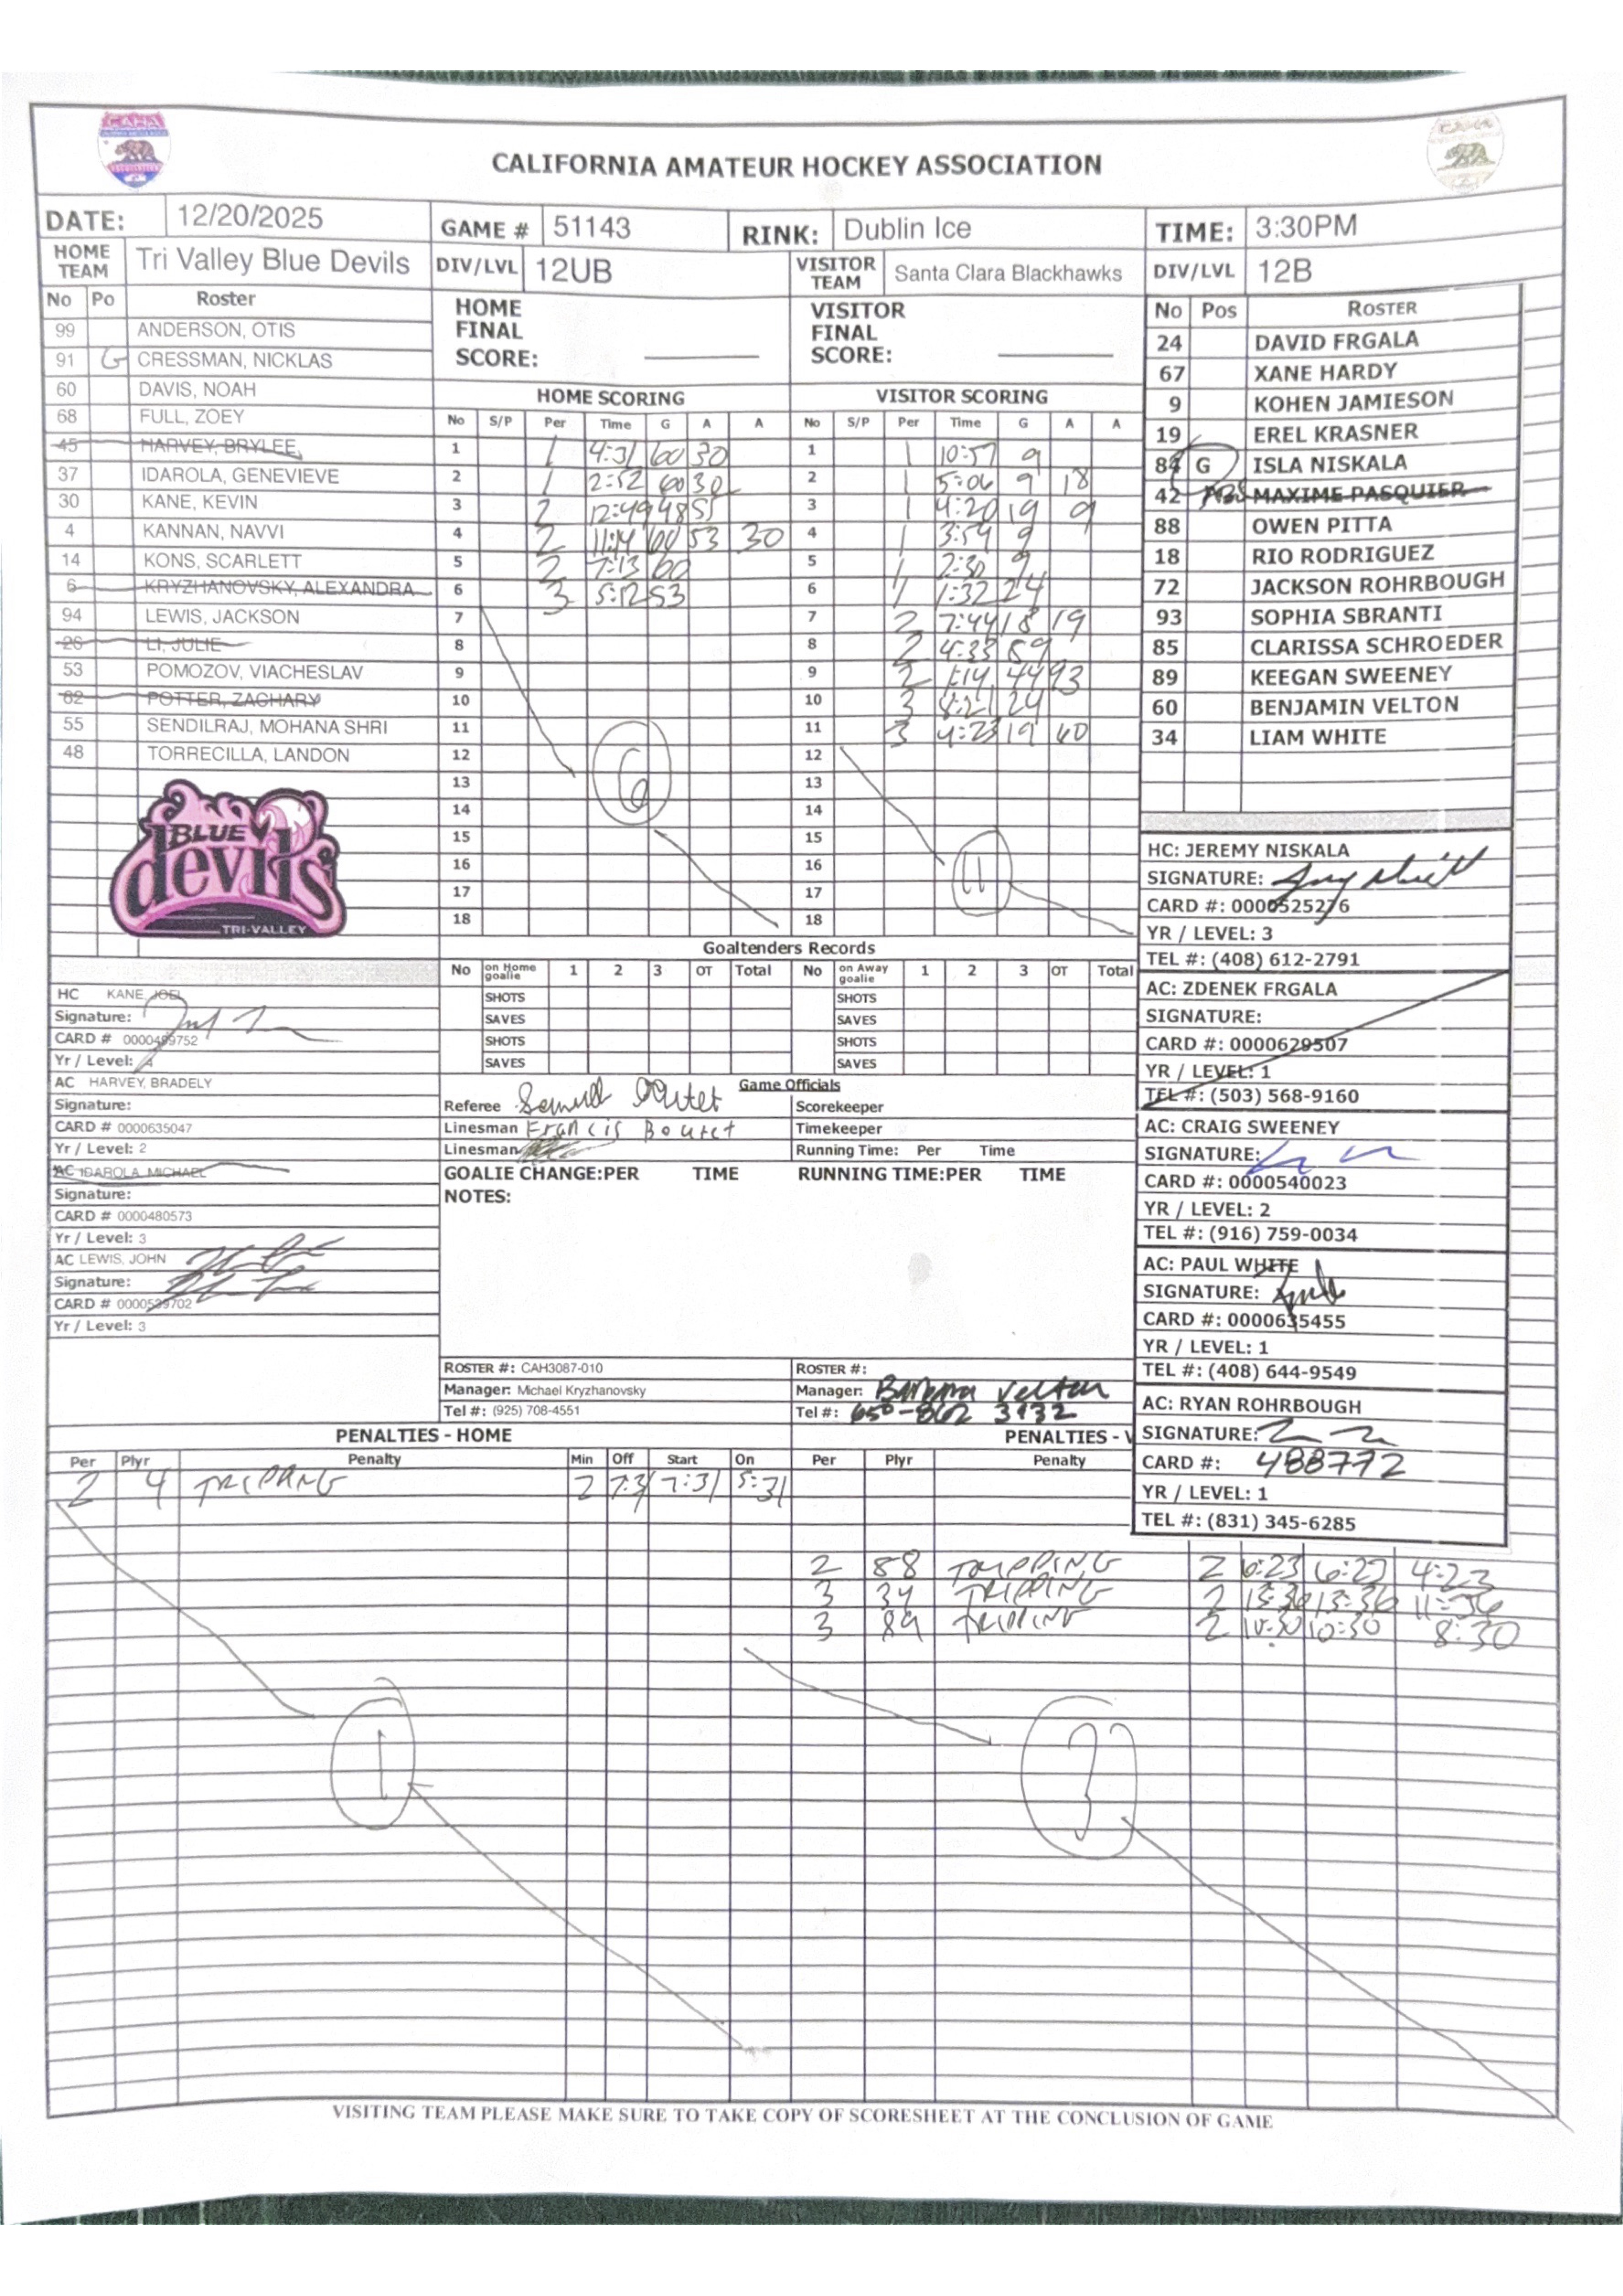 CALIFORNIA AMATEUR HOCKEY ASSOCIATION
DATE: 12/20/2025 GAME # 51143 RINK: Dublin Ice TIME: 3:30PM
HOME TEAM Tri Valley Blue Devils DIV/LVL 12UB VISITOR TEAM Santa Clara Blackhawks DIV/LVL 12B
No Po Roster
99 ANDERSON, OTIS
91 G CRESSMAN, NICKLAS
60 DAVIS, NOAH
68 FULL, ZOEY
45 HARVEY, BRYLEE
37 IDAROLA, GENEVIEVE
30 KANE, KEVIN
4 KANNAN, NAVVI
14 KONS, SCARLETT
6 KRYZHANOVSKY, ALEXANDRA
94 LEWIS, JACKSON
26 LI, JULIE
53 POMOZOV, VIACHESLAV
82 POTTER, ZACHARY
55 SENDILRAJ, MOHANA SHRI
48 TORRECILLA, LANDON
BLUE
devils
TRI-VALLEY
HC KANE, JOEL
Signature:
CARD # 0000499752
Yr / Level: 4
AC HARVEY, BRADELY
Signature:
CARD # 0000635047
Yr / Level: 2
AC IDAROLA, MICHAEL
Signature:
CARD # 0000480573
Yr / Level: 3
AC LEWIS, JOHN
Signature:
CARD # 0000539702
Yr / Level: 3
HOME FINAL SCORE:
VISITOR FINAL SCORE:
HOME SCORING
No S/P Per Time G A A
1 1 4:31 60 30
2 1 2:52 60 30
3 2 12:49 48 55
4 2 11:14 60 53 30
5 2 7:13 60
6 3 5:12 53
7
8
9
10
11
12
13
14
15
16
17
18
6
VISITOR SCORING
No S/P Per Time G A A
1 1 10:57 9
2 1 5:06 9 18
3 1 4:20 19 9
4 1 3:54 9
5 1 2:30 9
6 1 1:32 24
7 2 7:44 18 19
8 2 4:33 89
9 2 1:14 44 93
10 3 8:21 24
11 3 4:23 19 60
12
13
14
15
16
17
18
11
Goaltenders Records
No on Home goalie 1 2 3 OT Total No on Away goalie 1 2 3 OT Total
SHOTS SHOTS
SAVES SAVES
SHOTS SHOTS
SAVES SAVES
Game Officials
Referee Scorekeeper
Linesman Francis Timekeeper
Linesman Running Time: Per Time
GOALIE CHANGE:PER TIME RUNNING TIME:PER TIME
NOTES:
ROSTER #: CAH3087-010 ROSTER #:
Manager: Michael Kryzhanovsky Manager: Barbara Velton
Tel #: (925) 708-4551 Tel #: 650-862 3132
No Pos ROSTER
24 DAVID FRGALA
67 XANE HARDY
9 KOHEN JAMIESON
19 EREL KRASNER
84 G ISLA NISKALA
42 MAXIME PASQUIER
88 OWEN PITTA
18 RIO RODRIGUEZ
72 JACKSON ROHRBOUGH
93 SOPHIA SBRANTI
85 CLARISSA SCHROEDER
89 KEEGAN SWEENEY
60 BENJAMIN VELTON
34 LIAM WHITE
HC: JEREMY NISKALA
SIGNATURE:
CARD #: 0000525276
YR / LEVEL: 3
TEL #: (408) 612-2791
AC: ZDENEK FRGALA
SIGNATURE:
CARD #: 0000629507
YR / LEVEL: 1
TEL #: (503) 568-9160
AC: CRAIG SWEENEY
SIGNATURE:
CARD #: 0000540023
YR / LEVEL: 2
TEL #: (916) 759-0034
AC: PAUL WHITE
SIGNATURE:
CARD #: 0000635455
YR / LEVEL: 1
TEL #: (408) 644-9549
AC: RYAN ROHRBOUGH
SIGNATURE:
CARD #: 488772
YR / LEVEL: 1
TEL #: (831) 345-6285
PENALTIES - HOME
Per Plyr Penalty Min Off Start On
2 4 TRIPPING 2 7:31 7:31 5:31
1
PENALTIES - V
Per Plyr Penalty
2 88 TRIPPING 2 6:23 6:23 4:23
3 34 TRIPPING 2 13:36 13:36 11:36
3 89 TRIPPING 2 10:30 10:30 8:30
3
VISITING TEAM PLEASE MAKE SURE TO TAKE COPY OF SCORESHEET AT THE CONCLUSION OF GAME